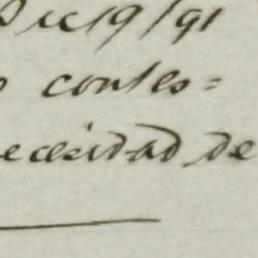 Dic 19/91
contes=
ecesidad de